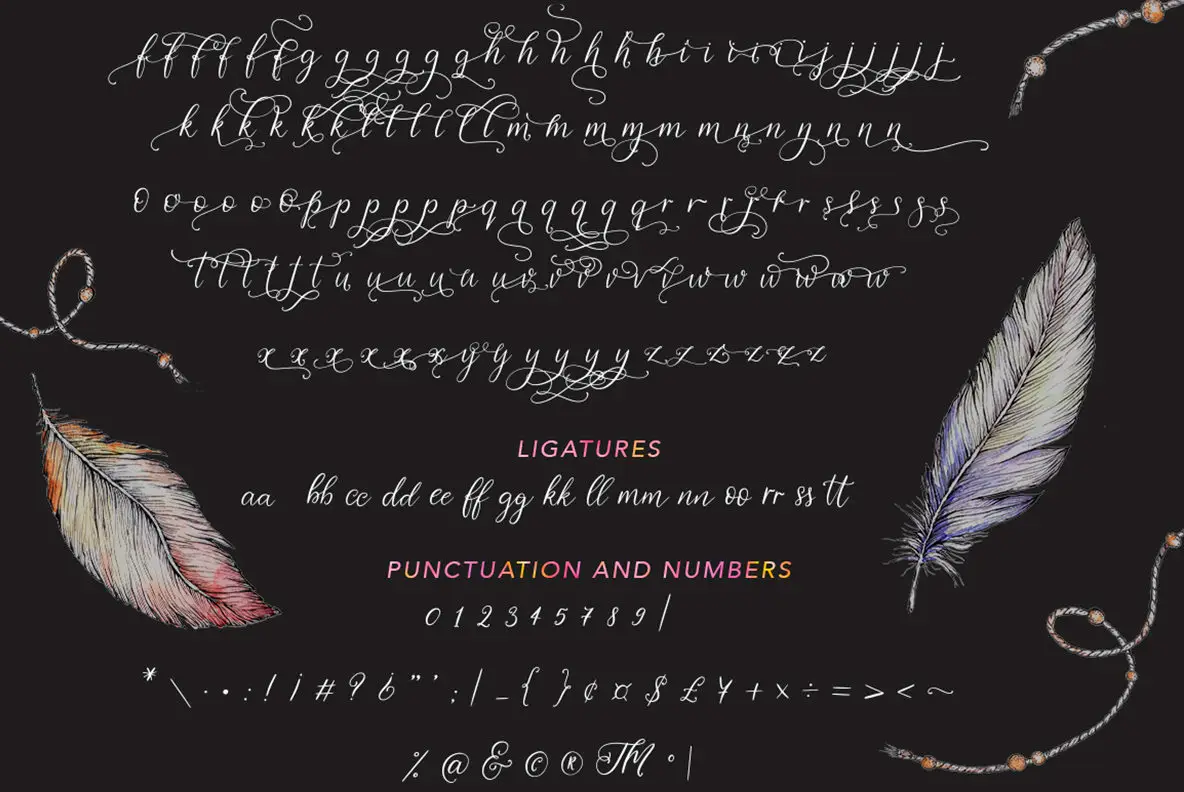 f f f f f f g g g g g g h h h h h h i i i i i i j j j j j j
k k k k k k l l l l l l m m m m m m n n n n n n
o o o o o o p p p p p p q q q q q q r r r r r r s s s s s s
t t t t t t u u u u u u v v v v v v w w w w w w
x x x x x x y y y y y y z z z z z z
LIGATURES
aa bb cc dd ee ff gg kk ll mm nn oo rr ss tt
PUNCTUATION AND NUMBERS
0 1 2 3 4 5 7 8 9 |
* \ · • : ! ¡ # ? ¿ " ' ; | _ { } ¢ ¤ $ £ ¥ + × ÷ = > < ~
% @ & © ® TM ° |